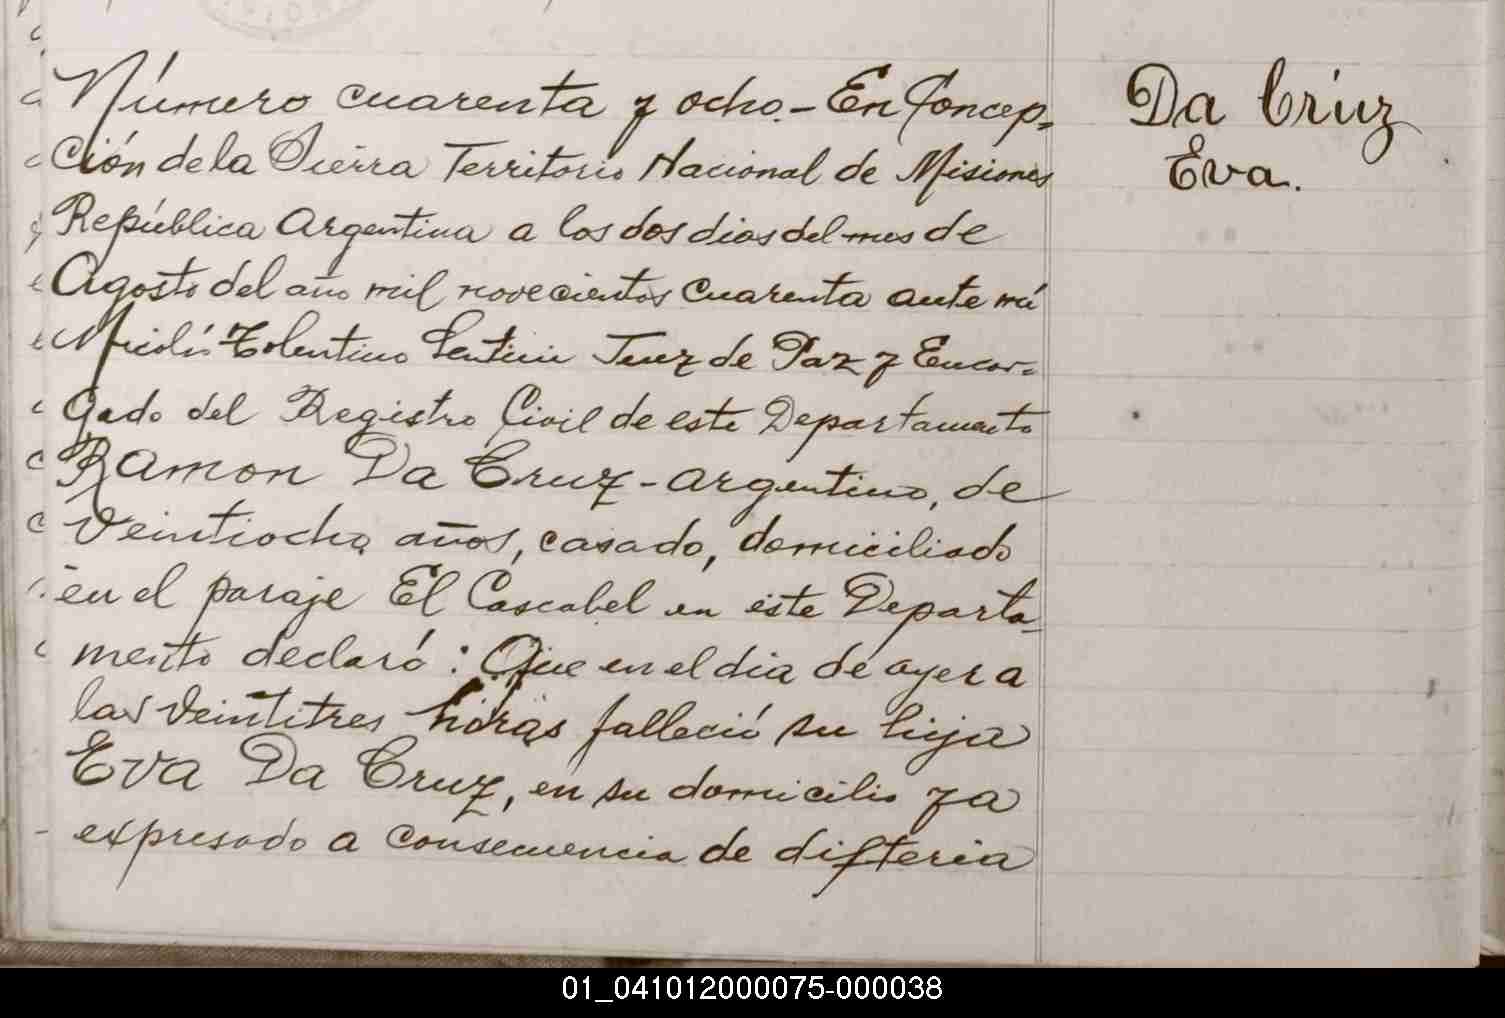 Número cuarenta y ocho.- En Concep-
ción de la Sierra Territorio Nacional de Misiones
República Argentina a los dos dias del mes de
Agosto del año mil novecientos cuarenta ante mí
Tolentino Juez de Paz y Encar-
gado del Registro Civil de este Departamento
Ramon Da Cruz - argentino, de
veintiocho años, casado, domiciliado
en el paraje El Cascabel en este Departa-
mento declaró: Que en el dia de ayer a
las veintitres horas falleció su hija
Eva Da Cruz, en su domicilio ya
expresado a consecuencia de difteria
Da Cruz
Eva.
01_041012000075-000038